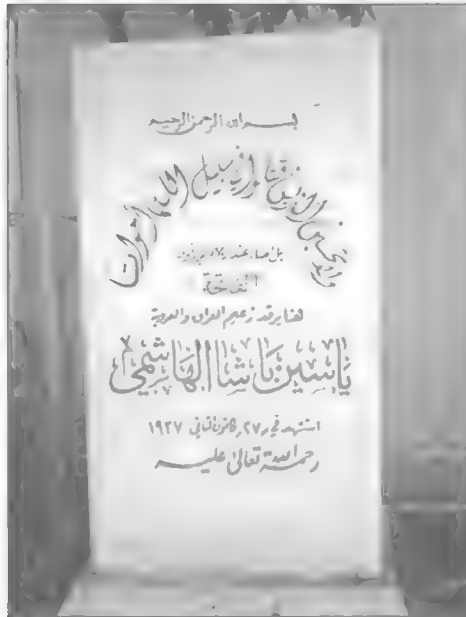 بسم الله الرحمن الرحيم
ولا تحسبن الذين قتلوا في سبيل الله أمواتا
بل أحياء عند ربهم يرزقون
الفاتحة
هنا يرقد زعيم العراق والعروبة
ياسين باشا الهاشمي
استشهد في ٢٧ كانون الثاني ١٩٣٧
رحمة الله تعالى عليه